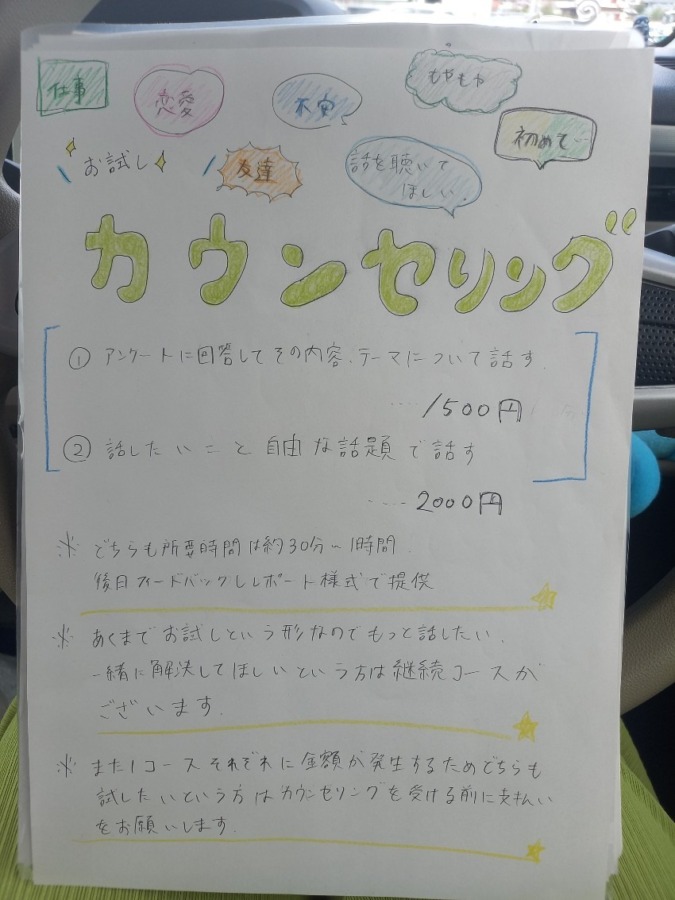 仕事
恋愛
不安
もやもや
初めて…
お試し
友達
話を聴いて
ほしい.
カウンセリング
① アンケートに回答してその内容、テーマについて話す.
…. 1500円
② 話したいこと自由な話題で話す
…. 2000円
※ どちらも所要時間は約30分〜1時間.
後日フィードバックしレポート様式で提供
※ あくまでお試しという形なのでもっと話したい、
一緒に解決してほしいという方は継続コースが
ございます.
※ また1コースそれぞれに金額が発生するためどちらも
試したいという方はカウンセリングを受ける前に支払い
をお願いします.